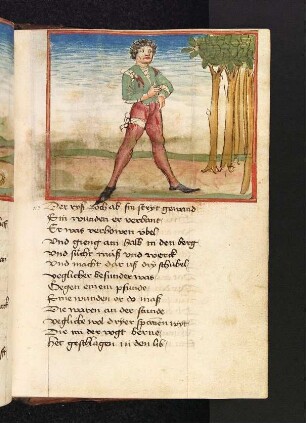 Der riß Doch ab sin stryt gewand
Ein wunden er verbant
Er was verhowen übel
Und gieng am halb in den berg
Und sücht müs und werck
Und macht dar uß dry schübel
yeglicher besunder was
Gegen einem pfunde
Eine wunden er do maß
Die waren an der stunde
yegliche wol dryer spannen wyt
Die im der vogt berne
Het geschlagen in den lib